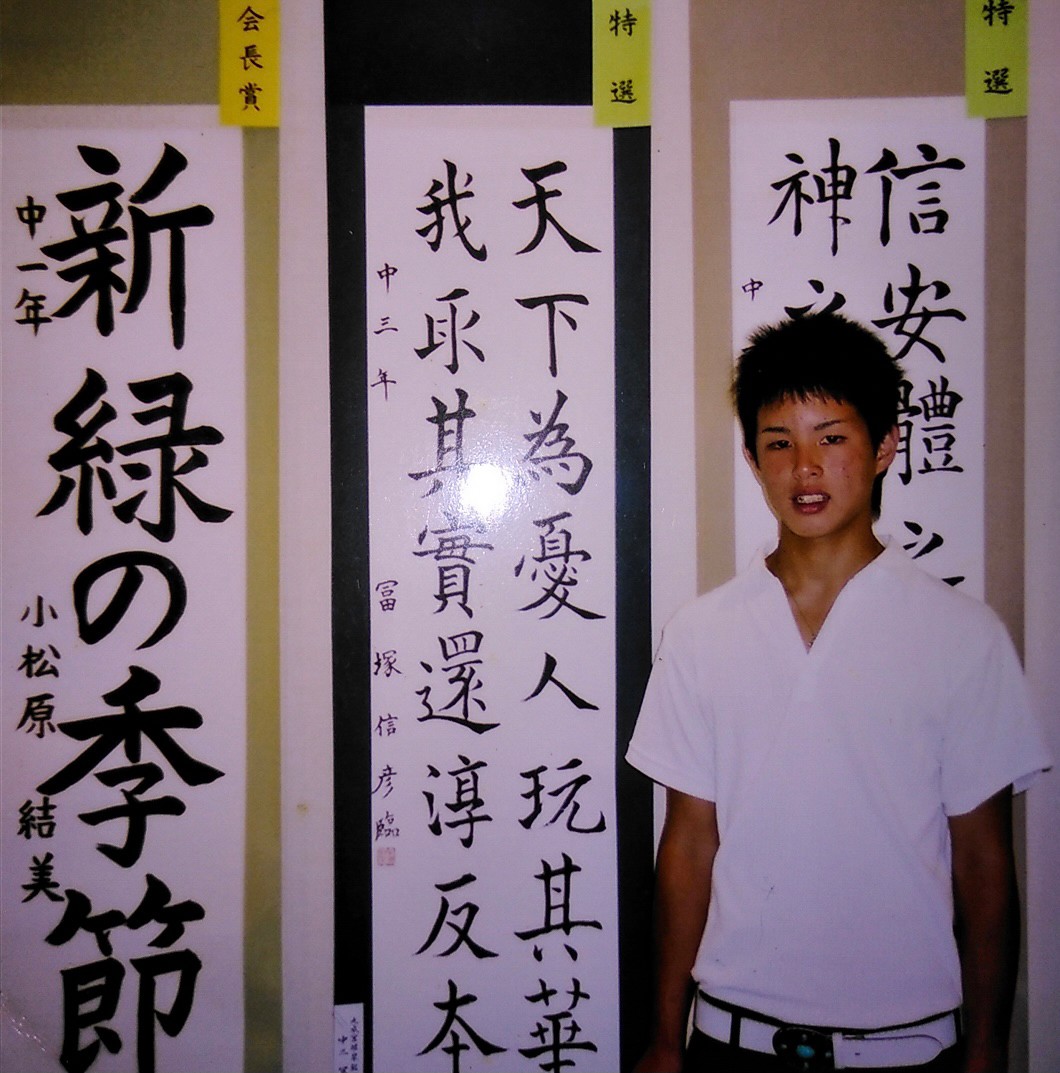 特選
信安體之
神之
中
特選
天下為憂人玩其華
我取其實還淳反本
中三年 冨塚信彦臨
会長賞
新緑の季節
中一年 小松原結美